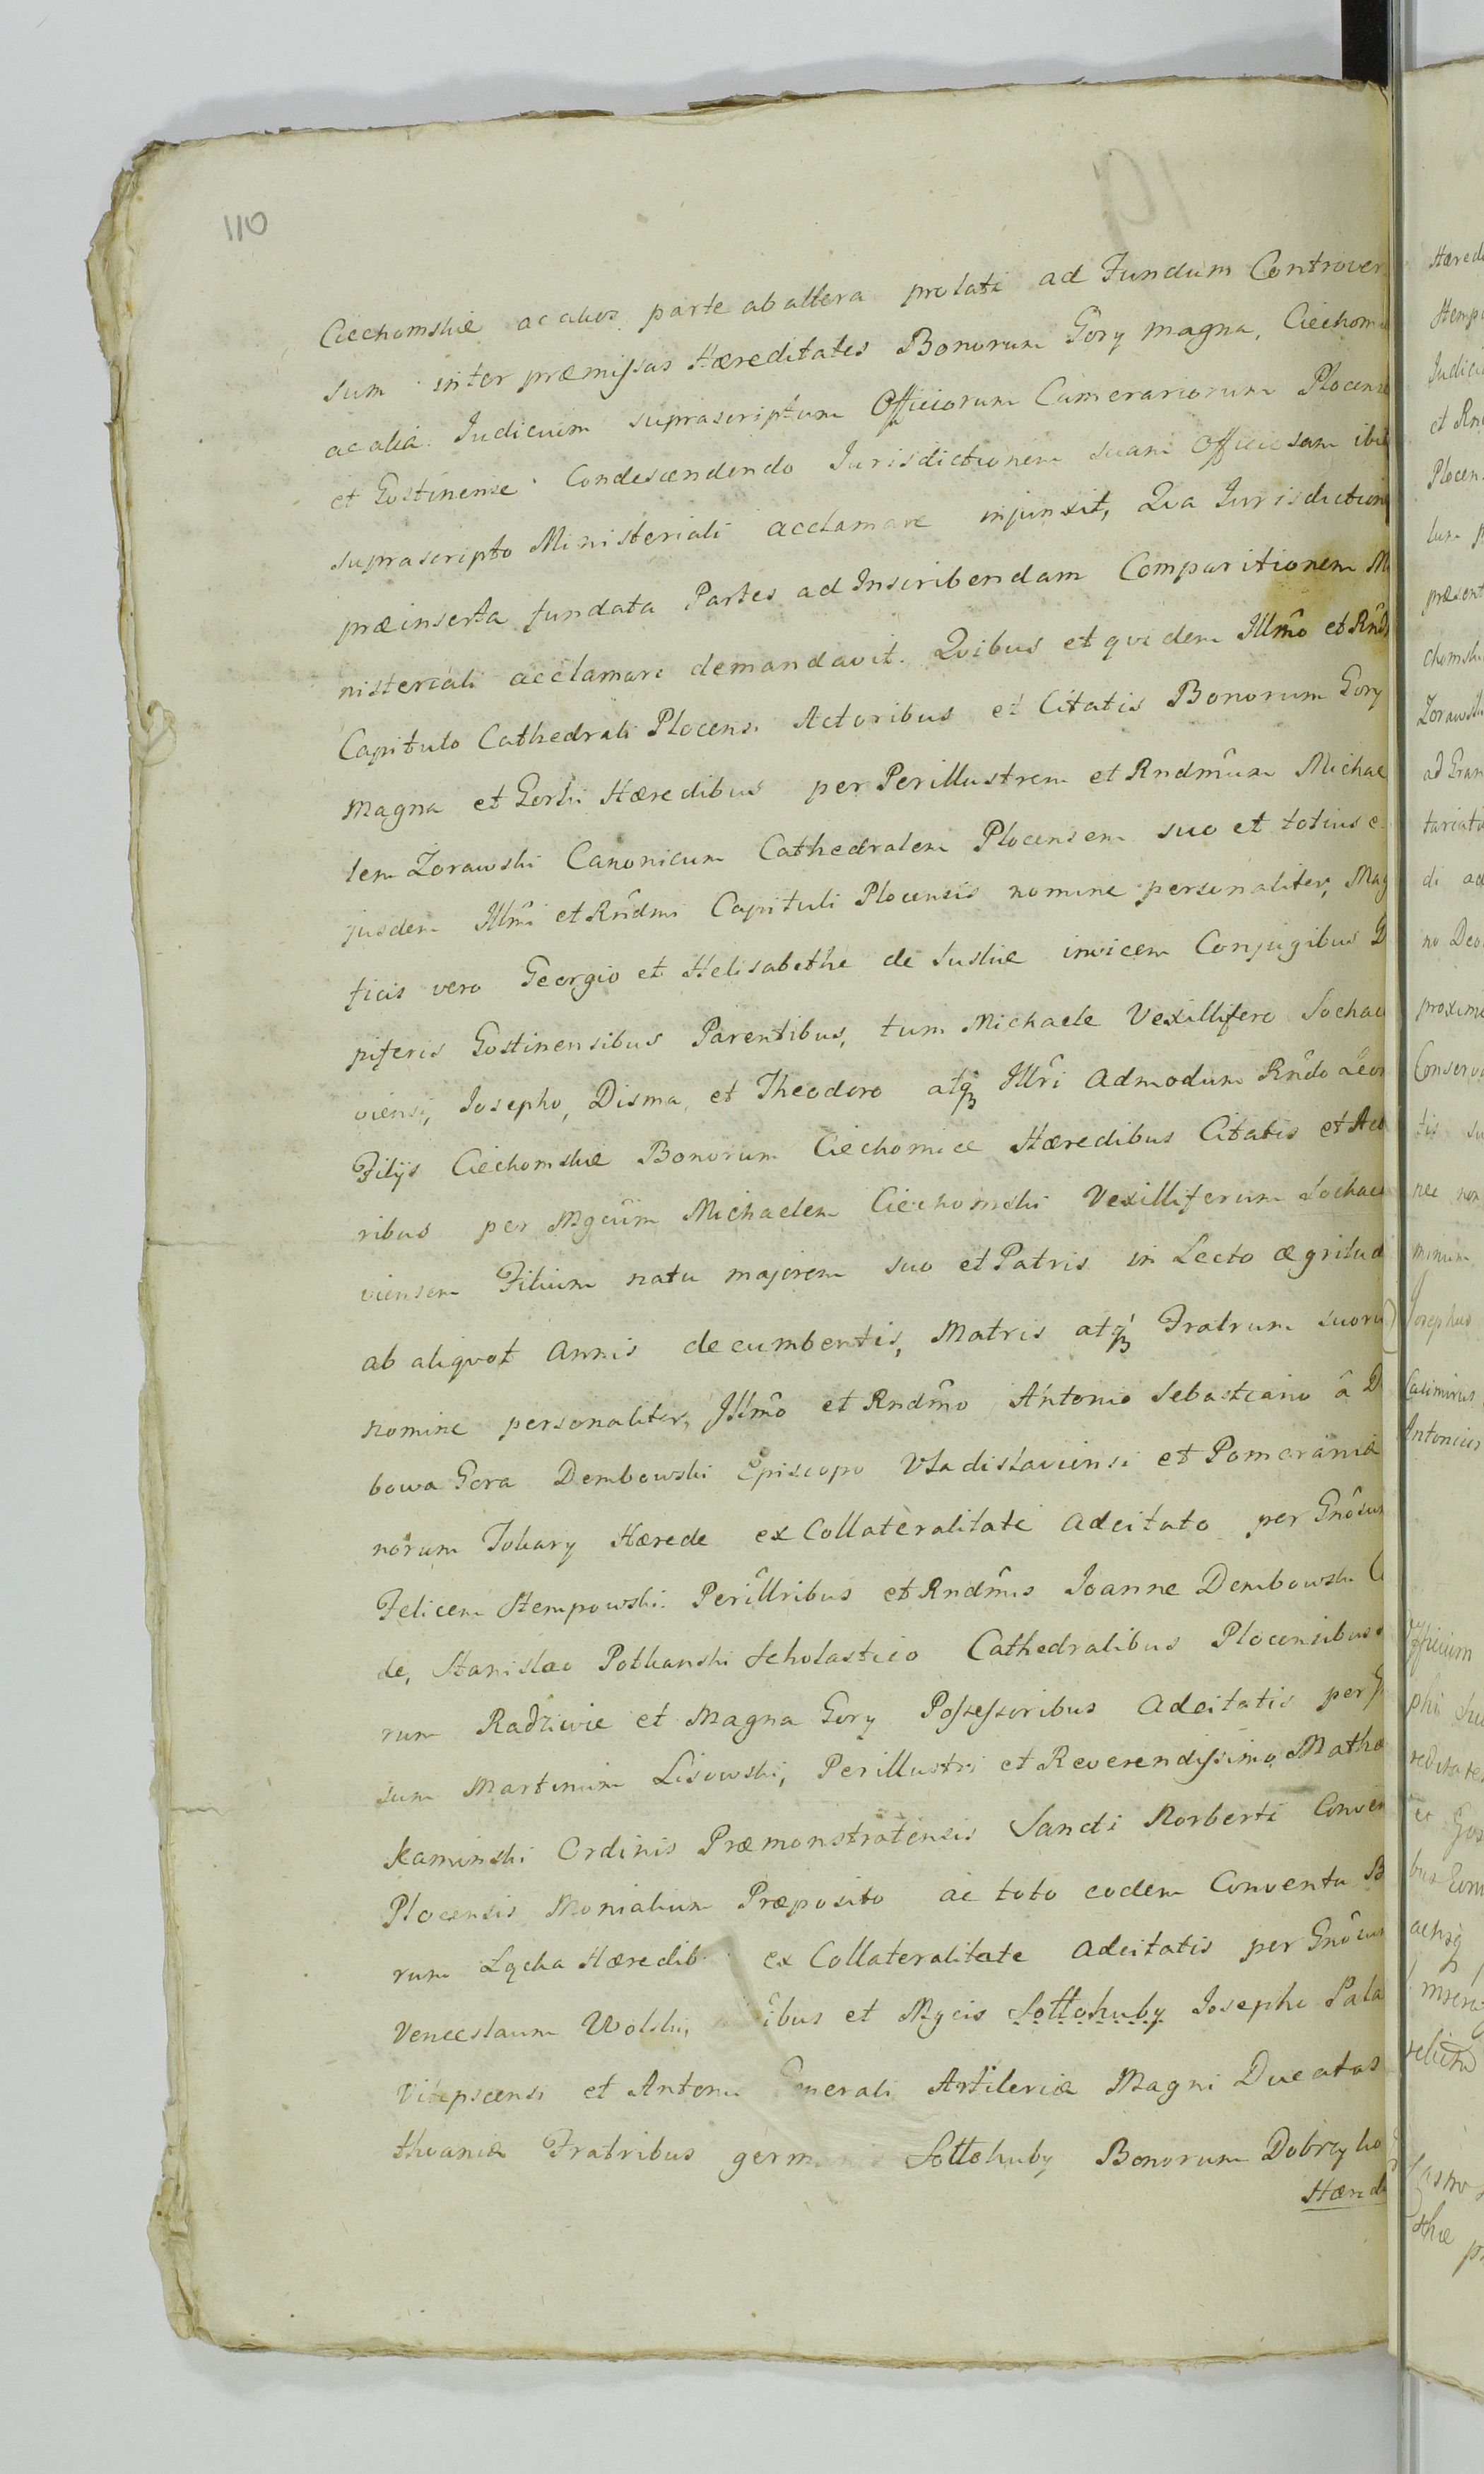 110
Ciechomskie ac alios parte ab altera prolati ad Fundum Controver
sum inter præmissas Hæreditates Bonorum Gory magna, Ciechom
ac alia. Judicium suprascriptum Officiorum Camerariorum Plocens
et Gostinense Condescendendo Jurisdictionem suam Officiosam ibi
suprascripto Ministeriali acclamare injunxit, Qua Jurisdictione
præinserta fundata Partes ad Inscribendam Comparitionem Mi
nisteriali acclamare demandavit. Quibus et quidem Illm̂o et Rnd
Capitulo Cathedrali Plocensi Actoribus et Citatis Bonorum Gory
Magna et Gorki Hæredibus per Perillustrem et Rndm̂um Michae
lem Zorawski Canonicum Cathedralem Plocensem suo et totius e
jusdem Illm̂i et Rndmi Capituli Plocensis nomine personaliter, Mag
ficis vero Georgio et Helisabethe de Suskie invicem Conjugibus D
piferis Gostinensibus Parentibus, tum Michaele Vexillifero Sochac
viensi, Josepho, Disma, et Theodoro atq̃ Illr̂i Admodum Rndo Leon
Filijs Ciechomskie Bonorum Ciechomice Hæredibus Citatis et Acto
ribus per Mgcum Michaelem Ciechomski Vexilliferum Sochac
viensem Filium natu majorem suo et Patris in Lecto ægritud
ab aliquot annis decumbentis, Matris atq̃ Fratrum suoru
nomine personaliter, Illm̂o et Rndm̂o Antonio Sebastiano â D
bowa Gora Dembowski Episcopo Vladislaviensi et Pomeraniæ
norum Tokary Hærede ex Collateralitate Adcitato per Gnôsum
Felicem Stempowski. Perillribus et Rndm̂is Joanne Dembowski
de, Stanislao Potkanski Scholastico Cathedralibus Plocensibus
rum Radziwie et Magna Gory Possessoribus Adcitatis per
sum Martinum Lisowski, Perillustri et Reverendissimo Mathæ
Kaminski Ordinis Præmonstratensis Sancti Norberti Conven
Plocensis Monialium Præposito ac toto eodem Conventu B
rum Lącka Hæredib ex Collateralitate Adcitatis per Gnôsum
Venceslaum Wolski, ibus et Mgcis Sottohuby Josepho Pala
Vitepscensi et Antonio Generali Artileriæ Magni Ducatus
thvaniæ Fratribus germ Sottohuby Bonorum Dobrzyko
Hæred